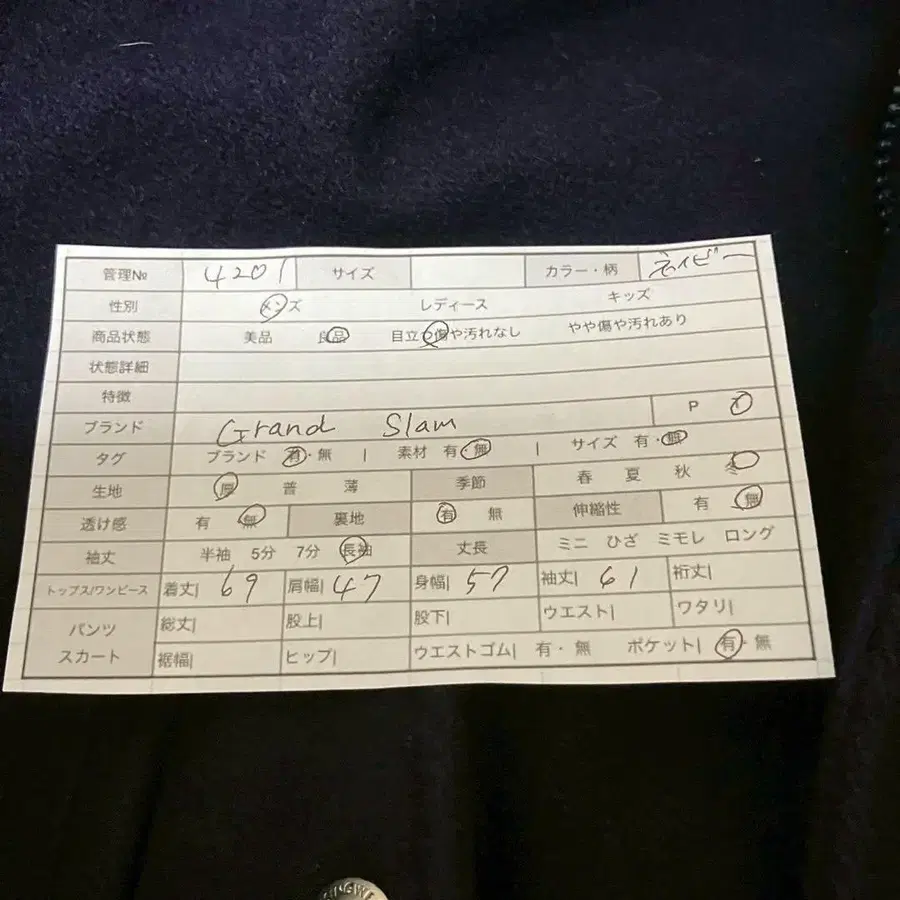 管理№ 4201 サイズ カラー・柄 ネイビー
性別 メンズ レディース キッズ
商品状態 美品 良品 目立つ傷や汚れなし やや傷や汚れあり
状態詳細
特徴
ブランド Grand Slam P
タグ ブランド 有・無 | 素材 有・無 | サイズ 有・無
生地 厚 普 薄 季節 春 夏 秋 冬
透け感 有 無 裏地 有 無 伸縮性 有 無
袖丈 半袖 5分 7分 長袖 丈長 ミニ ひざ ミモレ ロング
トップス/ワンピース 着丈| 69 肩幅| 47 身幅| 57 袖丈| 61 裄丈|
パンツ スカート 総丈| 股上| 股下| ウエスト| ワタリ|
裾幅| ヒップ| ウエストゴム| 有・無 ポケット| 有・無